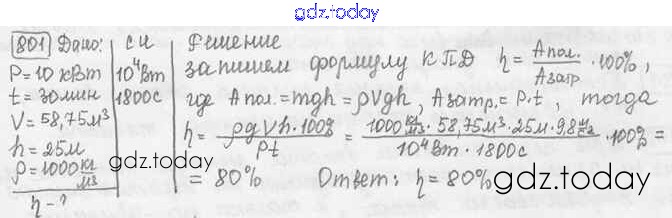 gdz.today
801 Дано: СИ Решение
P = 10 кВт 10⁴ Вт запишем формулу КПД η = Aпол./Aзатр · 100%,
t = 30 мин 1800 с где Aпол. = mgh = ρVgh, Aзатр. = P·t, тогда
V = 58,75 м³
h = 25 м η = ρgVh·100%/Pt = 1000 кг/м³ · 58,75 м³ · 25 м · 9,8 м/с²/10⁴ Вт · 1800 с · 100% =
ρ = 1000 кг/м³ = 80% Ответ: η = 80%
η - ?
gdz.today
gdz.today